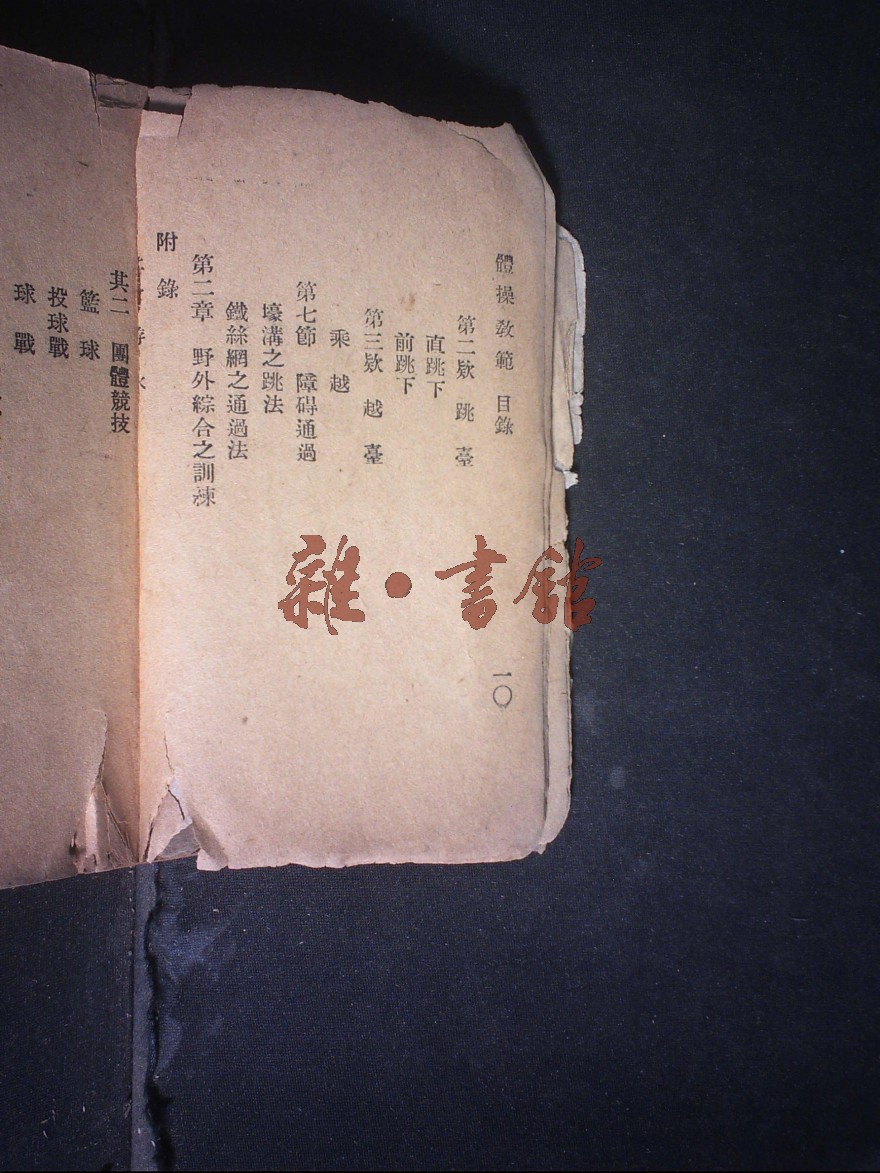 體操敎範 目錄
一〇
第二欵 跳 臺
直跳下
前跳下
第三欵 越 臺
乘 越
第七節 障碍通過
壕溝之跳法
鐵絲網之通過法
第二章 野外綜合之訓練
附 錄
其二 團體競技
籃 球
投球戰
球 戰
雜·書館